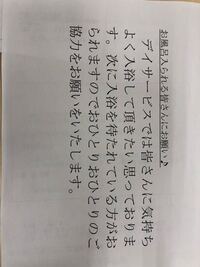 お風呂入られる皆さんにお願い♪
デイサービスでは皆さんに気持ち
よく入浴して頂きたい思っておりま
す。次に入浴を待たれている方がお
られますのでおひとりおひとりのご
協力をお願いをいたします。